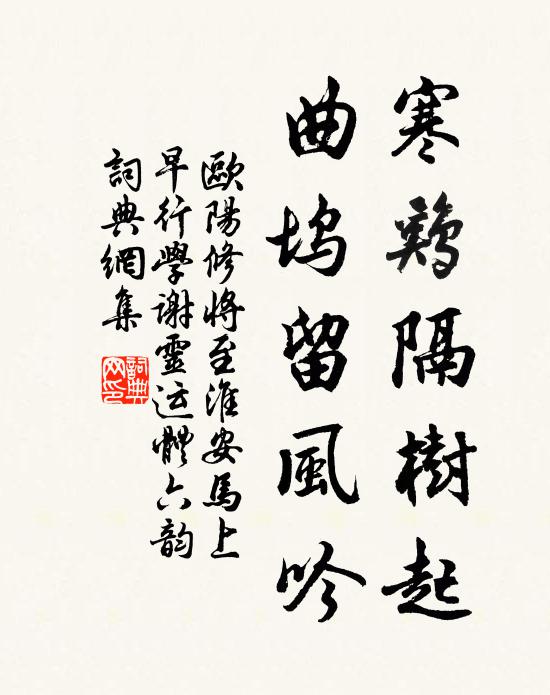 寒鷄隔樹起
曲塢留風吟
歐陽修將至淮安馬上
早行學謝靈运體六韵
詞典網集
詞典
网印